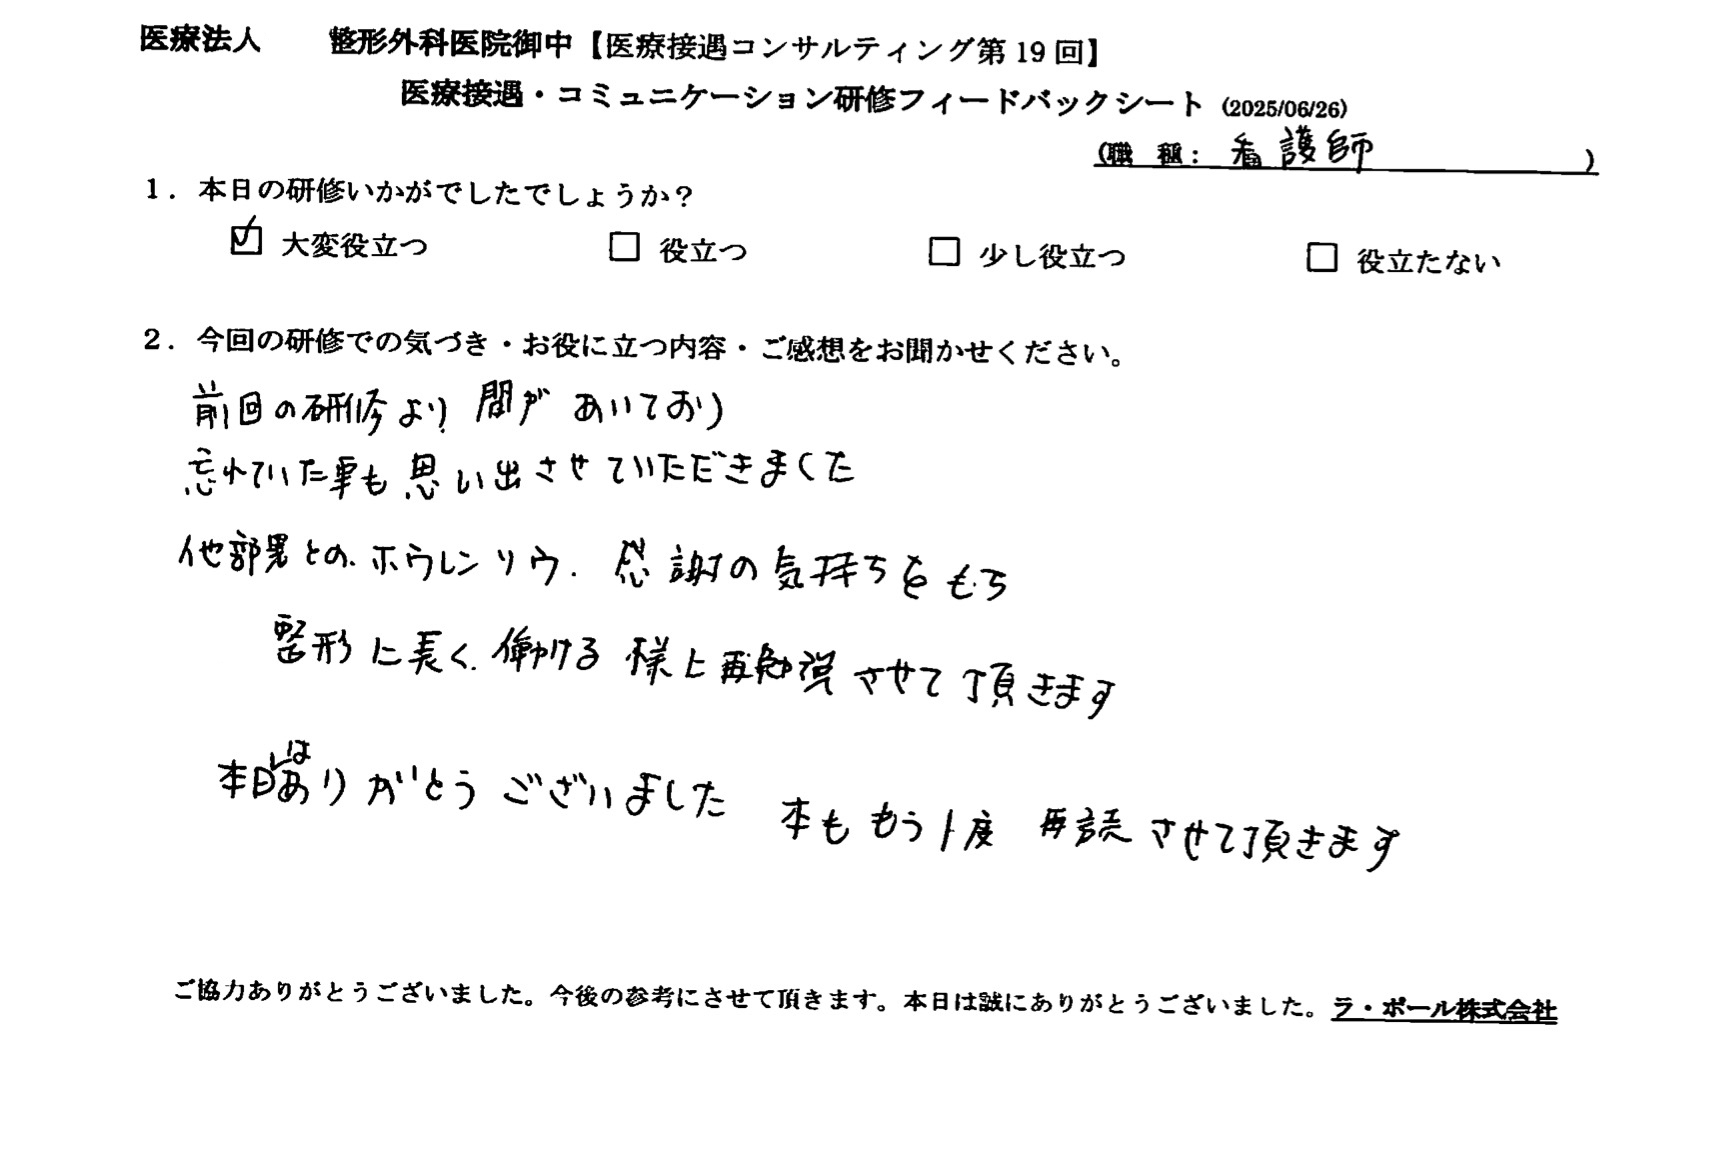 医療法人　　整形外科医院御中【医療接遇コンサルティング第19回】
医療接遇・コミュニケーション研修フィードバックシート（2025/06/26）
（職　種：　看護師　）
1．本日の研修いかがでしたでしょうか？
☑ 大変役立つ　□ 役立つ　□ 少し役立つ　□ 役立たない
2．今回の研修での気づき・お役に立つ内容・ご感想をお聞かせください。
前回の研修より 間が あいており
忘れていた事も 思い出させていただきました
他部署との、ホウレンソウ. 感謝の気持ちをもち
整形に長く、働ける様に再勉強させて頂きます
本日は ありがとうございました　本も もう1度 再読させて頂きます
ご協力ありがとうございました。今後の参考にさせて頂きます。本日は誠にありがとうございました。ラ・ポール株式会社